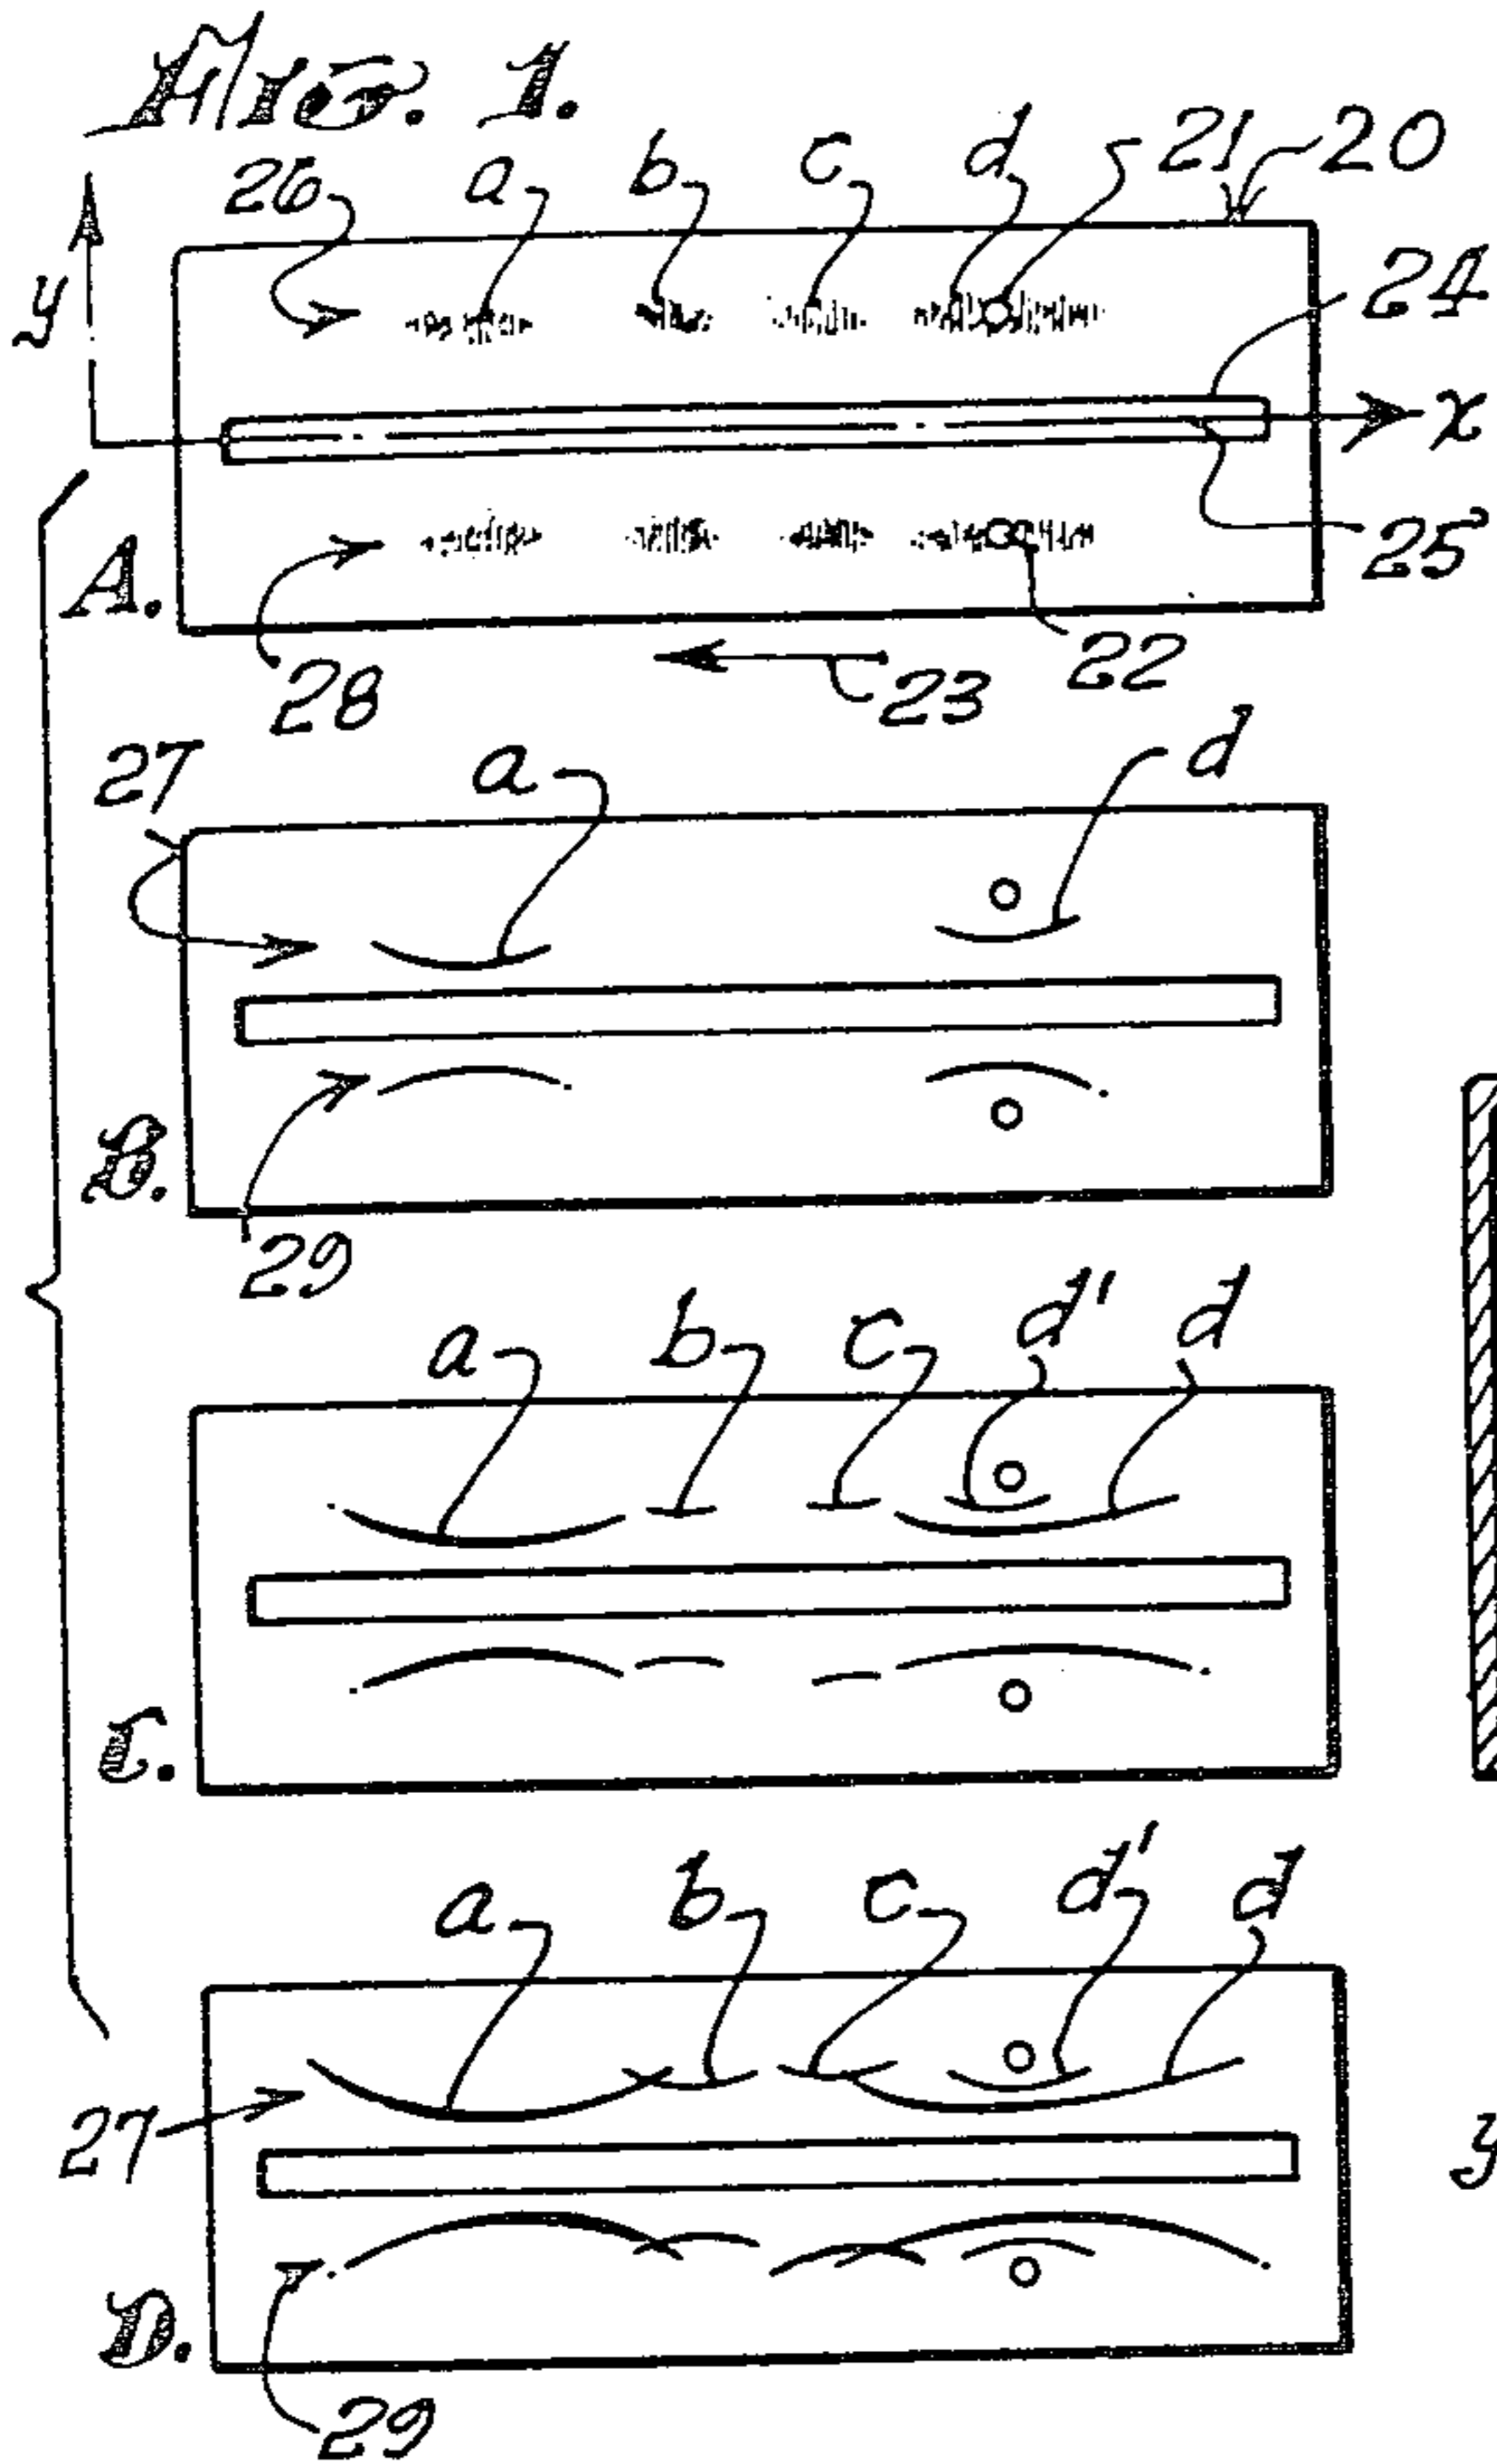 Fig. 1.
26 a b c d 21 20
y 24
x
A. 25
28 23 22
27 a d
B.
29
a b c d' d
C.
a b c d' d
27 y
D.
29